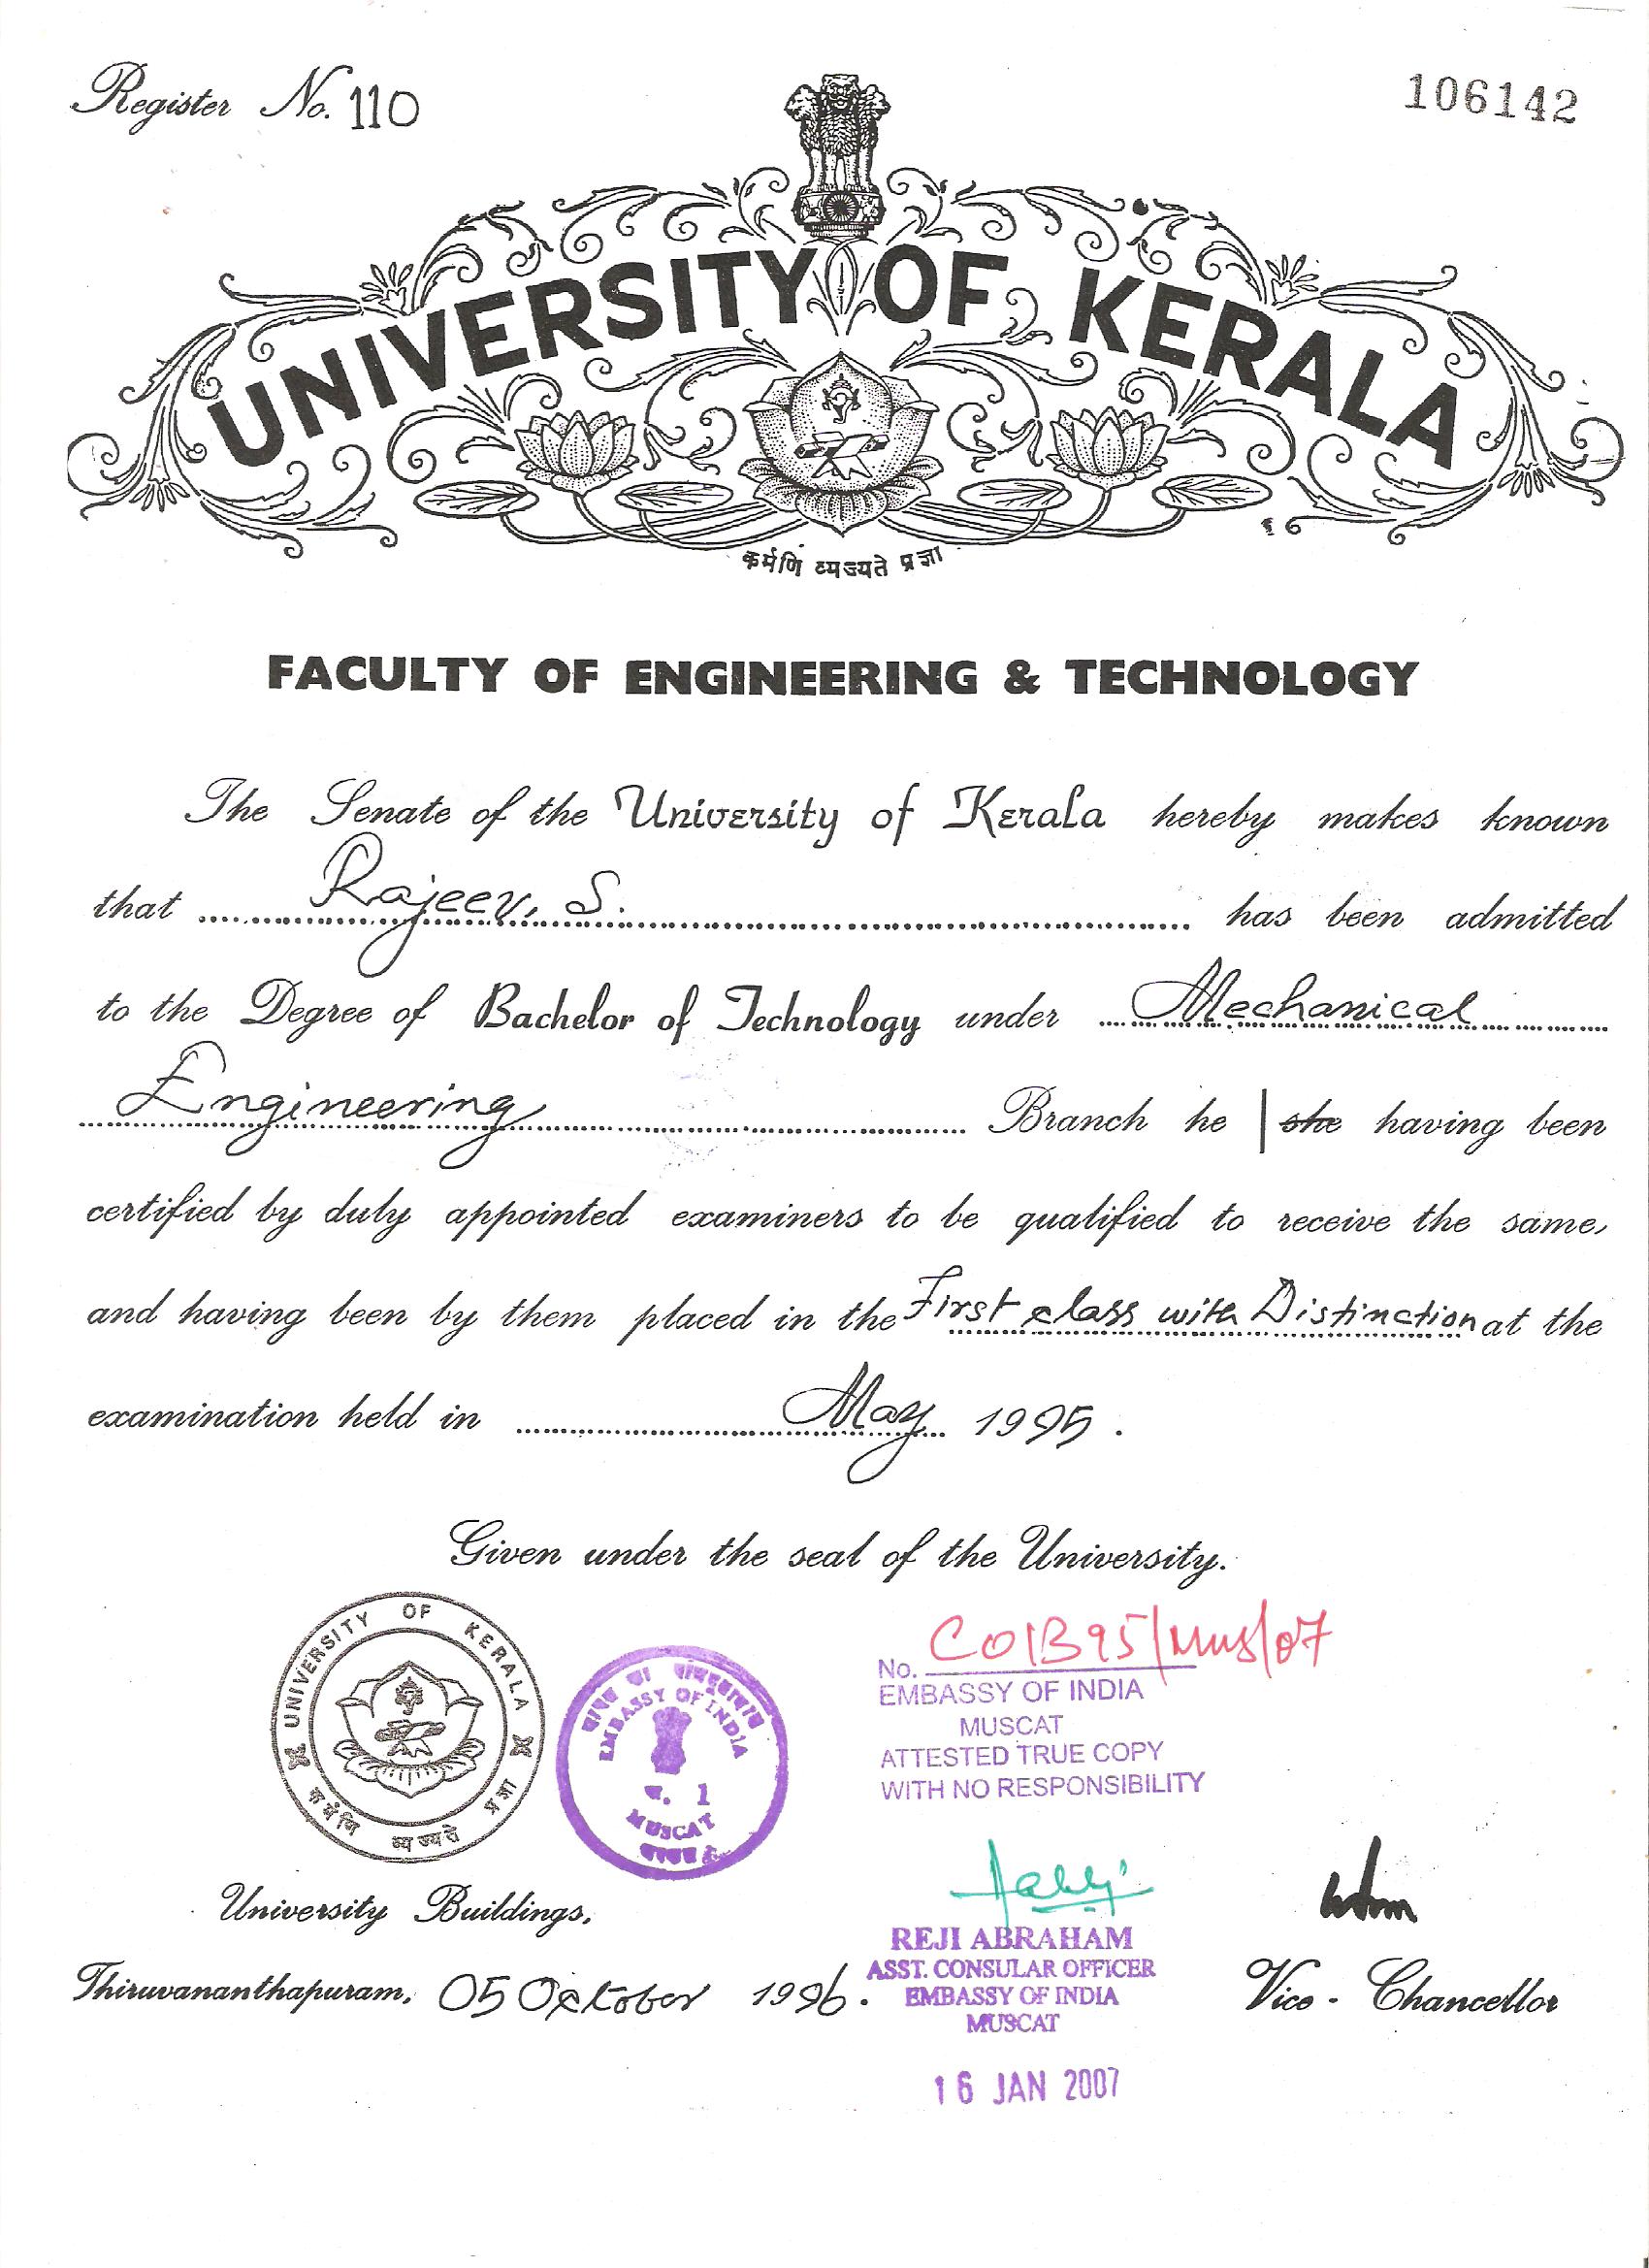 Register No. 110
106142
UNIVERSITY OF KERALA
कर्मणि व्यज्यते प्रज्ञा
FACULTY OF ENGINEERING & TECHNOLOGY
The Senate of the University of Kerala hereby makes known
that Rajeev, S. has been admitted
to the Degree of Bachelor of Technology under Mechanical
Engineering Branch he | she having been
certified by duly appointed examiners to be qualified to receive the same,
and having been by them placed in the First class with Distinction at the
examination held in May 1995.
Given under the seal of the University.
UNIVERSITY OF KERALA
कर्मणि व्यज्यते प्रज्ञा
EMBASSY OF INDIA
1
MUSCAT
No. COIB95/Mus/07
EMBASSY OF INDIA
MUSCAT
ATTESTED TRUE COPY
WITH NO RESPONSIBILITY
University Buildings,
Thiruvananthapuram, 05 October 1996.
REJI ABRAHAM
ASST. CONSULAR OFFICER
EMBASSY OF INDIA
MUSCAT
16 JAN 2007
Vice - Chancellor